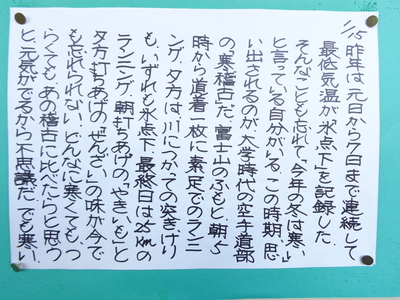 1/15 昨年は、元日から7日まで連続して
最低気温が「氷点下」を記録した。
そんなことも忘れて、「今年の冬は寒い」
と言っている自分がいる。この時期、思
い出されるのが、大学時代の空手道部
の「寒稽古」だ。富士山のふもと、朝5
時から道着一枚に素足でのランニ
ング、夕方は、川につかっての突きけり
も、いずれも氷点下。最終日は25Kmの
ランニング。朝打ちあげの「やきいも」と
夕方打ちあげの「ぜんざい」の味が今で
も忘れられない。どんなに寒くても、つ
らくても、あの稽古に比べたらと思う
と、元気がでるから不思議だ。でも寒い。